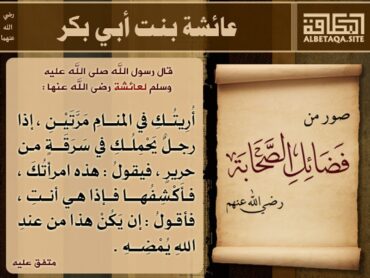 رضي
الله
عنهما
عائشة بنت أبي بكر
البطاقة
ALBETAQA.SITE
قال رسول الله صلى الله عليه
وسلم لعائشة رضي الله عنها :
أُريتُـكِ في المنـامِ مَرَّتَيْـنِ , إذا
رجلٌ يَحْمِلُـكِ في سَرَقَـةٍ مـن
حريرٍ , فيقولُ : هذه امرأتُكَ ,
فـأكْشِـفُهـا فـإذا هـي أنـتِ ,
فـأقولُ : إن يَكُنْ هذا من عندِ
اللهِ يُمْضِـهِ .
متفق عليه
صور من
فضائل الصحابة
رضي الله عنهم